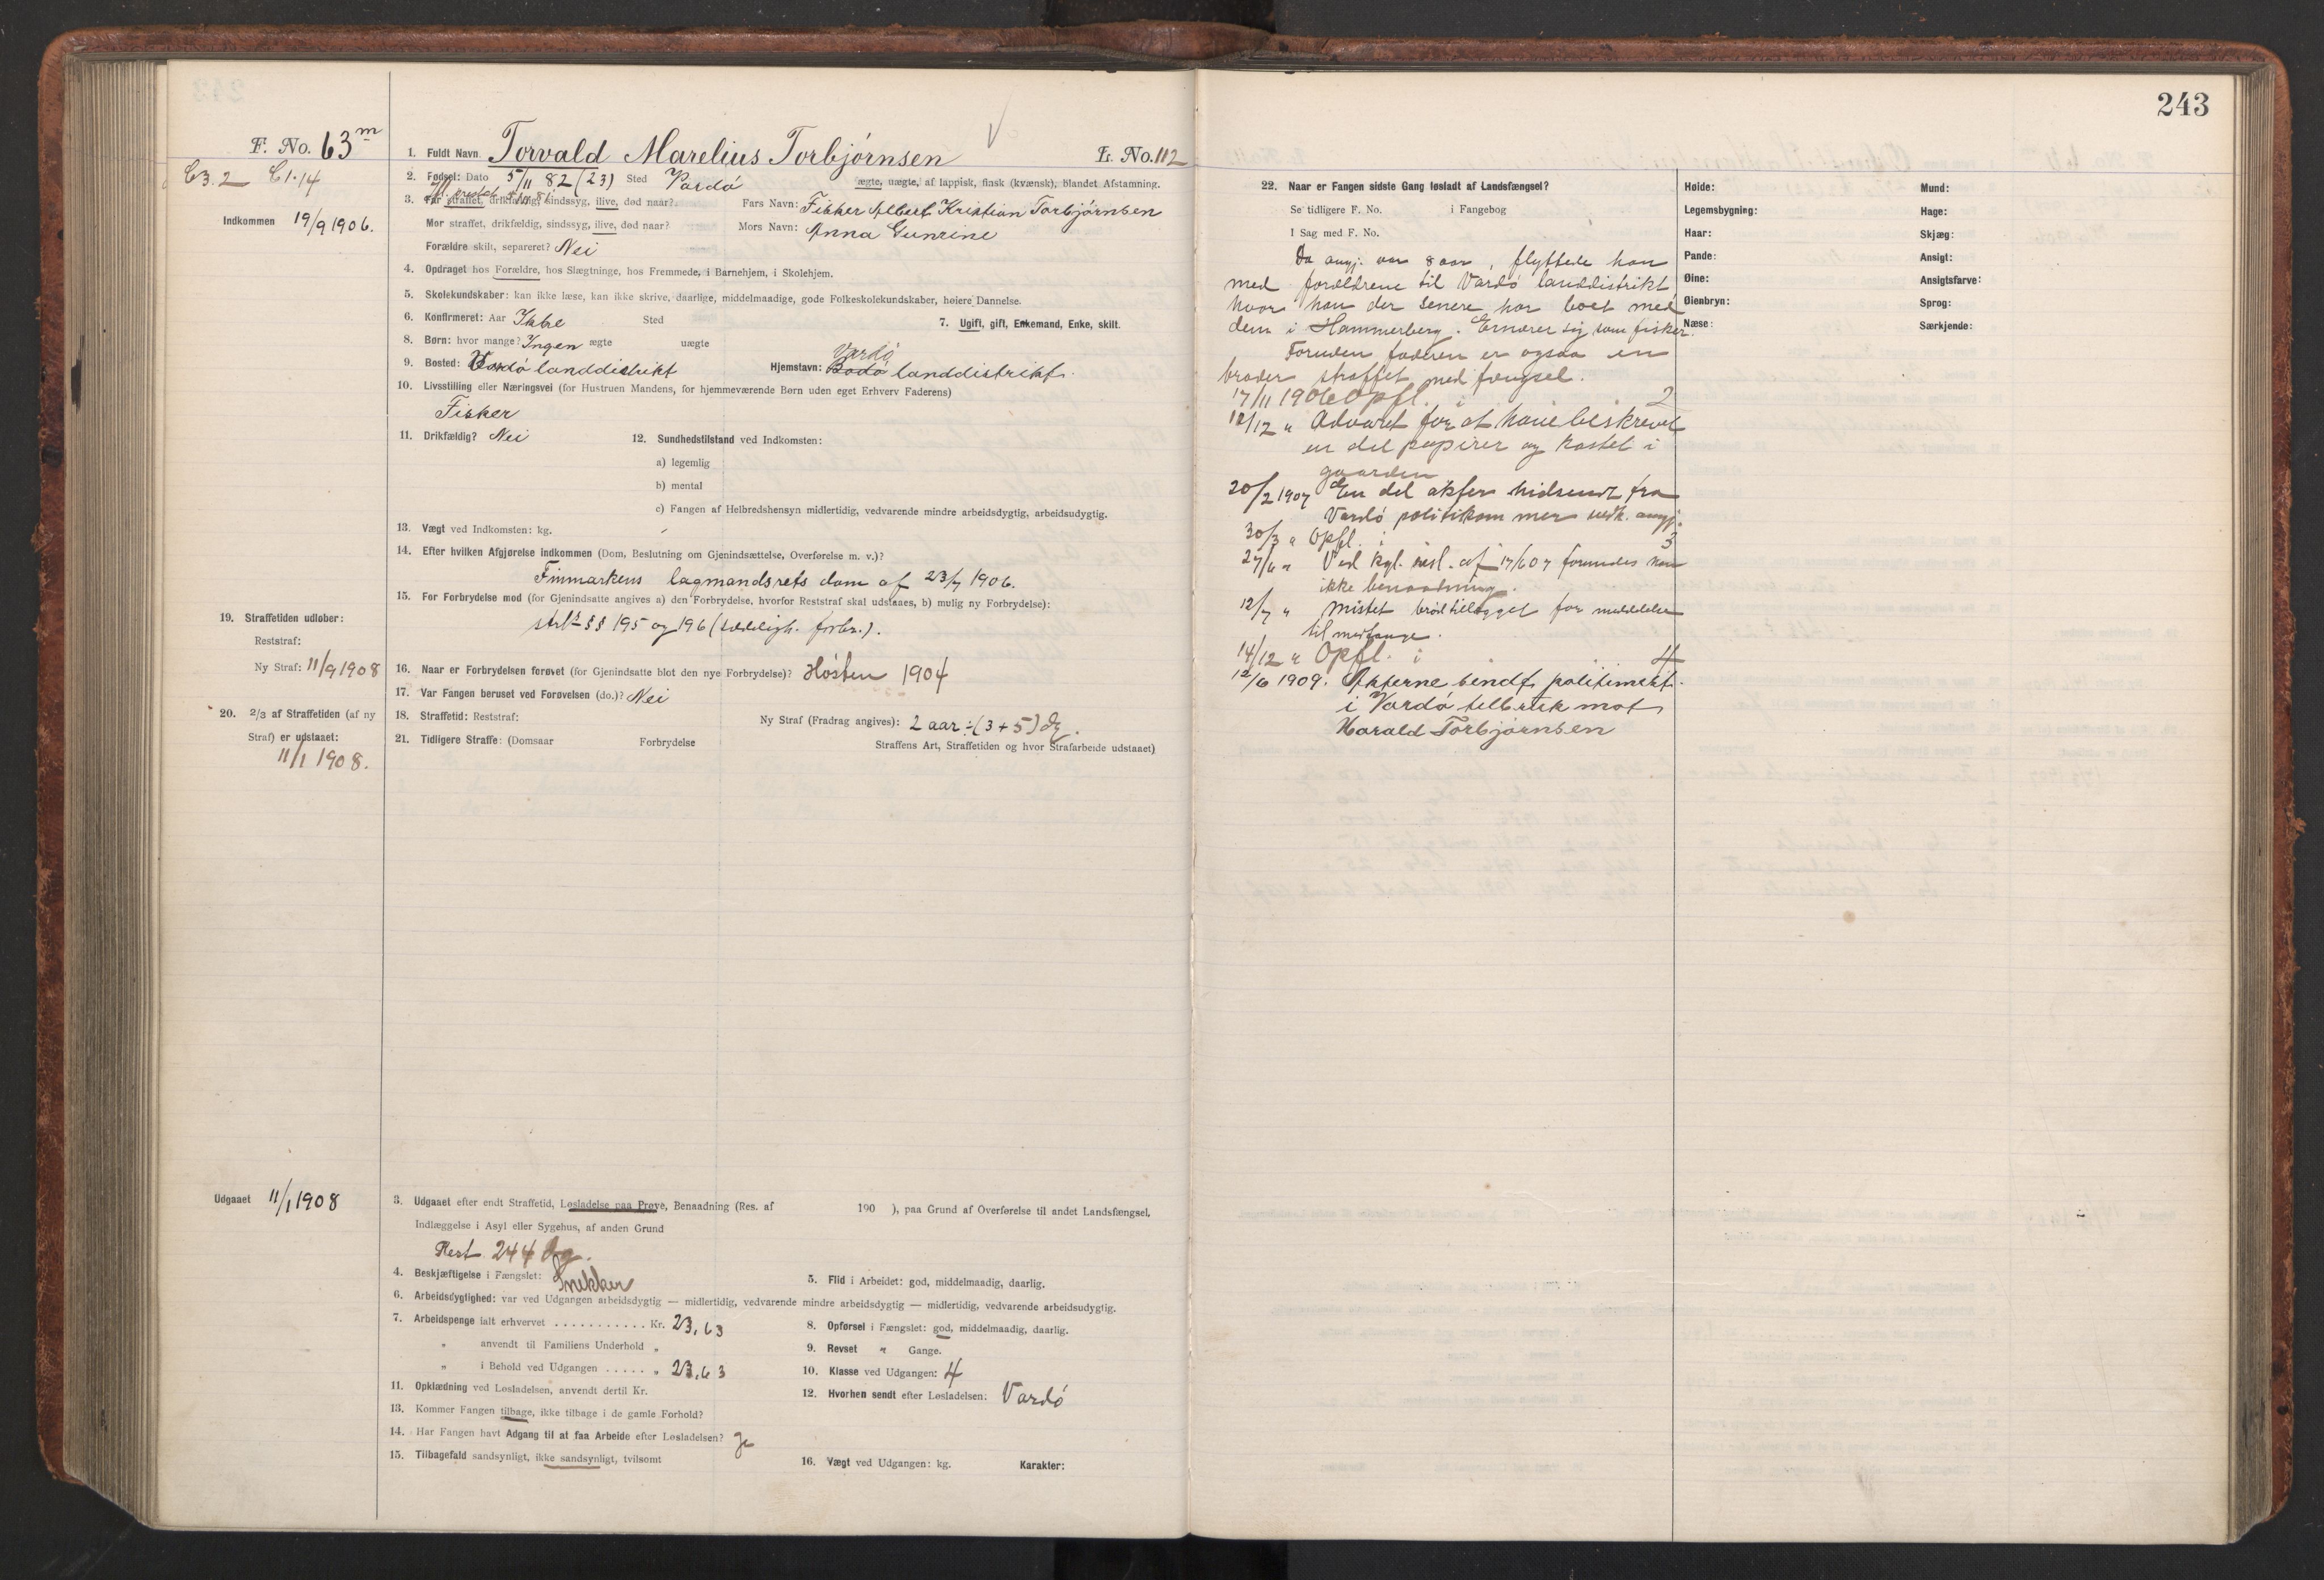 F. No. 63 m
C3.2 C1.14
Indkommen 19/9 1906.
1. Fuldt Navn Torvald Marelius Torbjørnsen L. No. 112
2. Fødsel: Dato 5/11 82 (23) Sted Vardø ægte, uægte, af lappisk, finsk (kvænsk), blandet Afstamning.
3. Far straffet, drikfældig, sindssyg, ilive, død naar? Fars Navn: Fisker Albert Kristian Torbjørnsen
Mor straffet, drikfældig, sindssyg, ilive, død naar? Mors Navn: Anna Gunrine
Forældre skilt, separeret? Nei
4. Opdraget hos Forældre, hos Slægtninge, hos Fremmede, i Barnehjem, i Skolehjem.
5. Skolekundskaber: kan ikke læse, kan ikke skrive, daarlige, middelmaadige, gode Folkeskolekundskaber, høiere Dannelse.
6. Konfirmeret: Aar Ikke Sted 7. Ugift, gift, Enkemand, Enke, skilt.
8. Børn: hvor mange? Ingen ægte uægte
9. Bosted: Vardø landdistrikt Hjemstavn: Bodø Vardø landdistrikt.
10. Livsstilling eller Næringsvei (for Hustruen Mandens, for hjemmeværende Børn uden eget Erhverv Faderens)
Fisker
11. Drikfældig? Nei 12. Sundhedstilstand ved Indkomsten:
a) legemlig
b) mental
c) Fangen af Helbredshensyn midlertidig, vedvarende mindre arbeidsdygtig, arbeidsudygtig.
13. Vægt ved Indkomsten: kg.
14. Efter hvilken Afgjørelse indkommen (Dom, Beslutning om Gjenindsættelse, Overførelse m. v.)?
Finmarkens lagmandsrets dom af 23/7 1906.
15. For Forbrydelse mod (for Gjenindsatte angives a) den Forbrydelse, hvorfor Reststraf skal udstaaes, b) mulig ny Forbrydelse):
strl. §§ 195 og 196 (sædeligh. forbr.).
19. Straffetiden udløber:
Reststraf:
Ny Straf: 11/9 1908
16. Naar er Forbrydelsen forøvet (for Gjenindsatte blot den nye Forbrydelse)? Høsten 1904
17. Var Fangen beruset ved Forøvelsen (do.)? Nei
20. 2/3 af Straffetiden (af ny
Straf) er udstaaet:
11/1 1908.
18. Straffetid: Reststraf: Ny Straf (Fradrag angives): 2 aar ÷ (3 + 5) dg.
21. Tidligere Straffe: (Domsaar Forbrydelse Straffens Art, Straffetiden og hvor Strafarbeide udstaaet)
Udgaaet 11/1 1908
3. Udgaaet efter endt Straffetid, Løsladelse paa Prøve, Benaadning (Res. af 190 ), paa Grund af Overførelse til andet Landsfængsel,
Indlæggelse i Asyl eller Sygehus, af anden Grund
Rest 244 dg.
4. Beskjæftigelse i Fængslet: Snekker 5. Flid i Arbeidet: god, middelmaadig, daarlig.
6. Arbeidsdygtighed: var ved Udgangen arbeidsdygtig — midlertidig, vedvarende mindre arbeidsdygtig — midlertidig, vedvarende arbeidsudygtig.
7. Arbeidspenge ialt erhvervet ........... Kr. 23,63 8. Opførsel i Fængslet: god, middelmaadig, daarlig.
" anvendt til Familiens Underhold " 9. Revset " Gange.
" i Behold ved Udgangen ..... " 23,63 10. Klasse ved Udgangen: 4
11. Opklædning ved Løsladelsen, anvendt dertil Kr. 12. Hvorhen sendt efter Løsladelsen: Vardø
13. Kommer Fangen tilbage, ikke tilbage i de gamle Forhold?
14. Har Fangen havt Adgang til at faa Arbeide efter Løsladelsen? Ja
15. Tilbagefald sandsynligt, ikke sandsynligt, tvilsomt 16. Vægt ved Udgangen: kg. Karakter:
243
22. Naar er Fangen sidste Gang løsladt af Landsfængsel?
Se tidligere F. No. i Fangebog
I Sag med F. No.
Da angj. var 8 aar, flyttede han
med forældrene til Vardø landdistrikt
hvor han der senere har boet med
dem i Hammerberg. Ernærer sig som fisker.
Foruden faderen er ogsaa en
broder straffet med fængsel.
17/11 1906 Opfl. i 2
12/12 " Advaret for at have beskrevet
en del papirer og kastet i
gaarden
20/2 1907 En del akter hidsendt fra
Vardø politikammer vedk. angj.
30/3 " Opfl. i 3
27/6 " Ved kgl. resl. af 17/6 07 formenes han
ikke benaadning.
12/7 " Mistet brødtillegget for meddelelse
til medfange.
14/12 " Opfl. i 4
12/6 1909. Akterne sendt politimest.
i Vardø tilbruk mot
Harald Torbjørnsen
Høide: Mund:
Legemsbygning: Hage:
Haar: Skjæg:
Pande: Ansigt:
Øine: Ansigtsfarve:
Øienbryn: Sprog:
Næse: Særkjende: